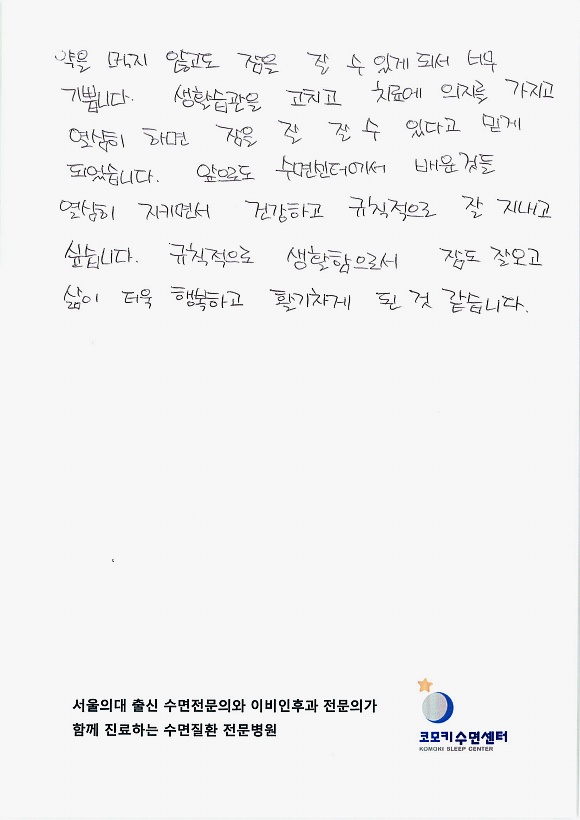 약을 먹지 않고도 잠을 잘 수 있게 되서 너무
기쁩니다. 생활습관을 고치고 치료에 의지를 가지고
열심히 하면 잠을 잘 잘 수 있다고 믿게
되었습니다. 앞으로도 수면센터에서 배운것들
열심히 지키면서 건강하고 규칙적으로 잘 지내고
싶습니다. 규칙적으로 생활함으로서 잠도 잘오고
삶이 더욱 행복하고 활기차게 된 것 같습니다.
서울의대 출신 수면전문의와 이비인후과 전문의가
함께 진료하는 수면질환 전문병원
코모키수면센터
KOMOKI SLEEP CENTER